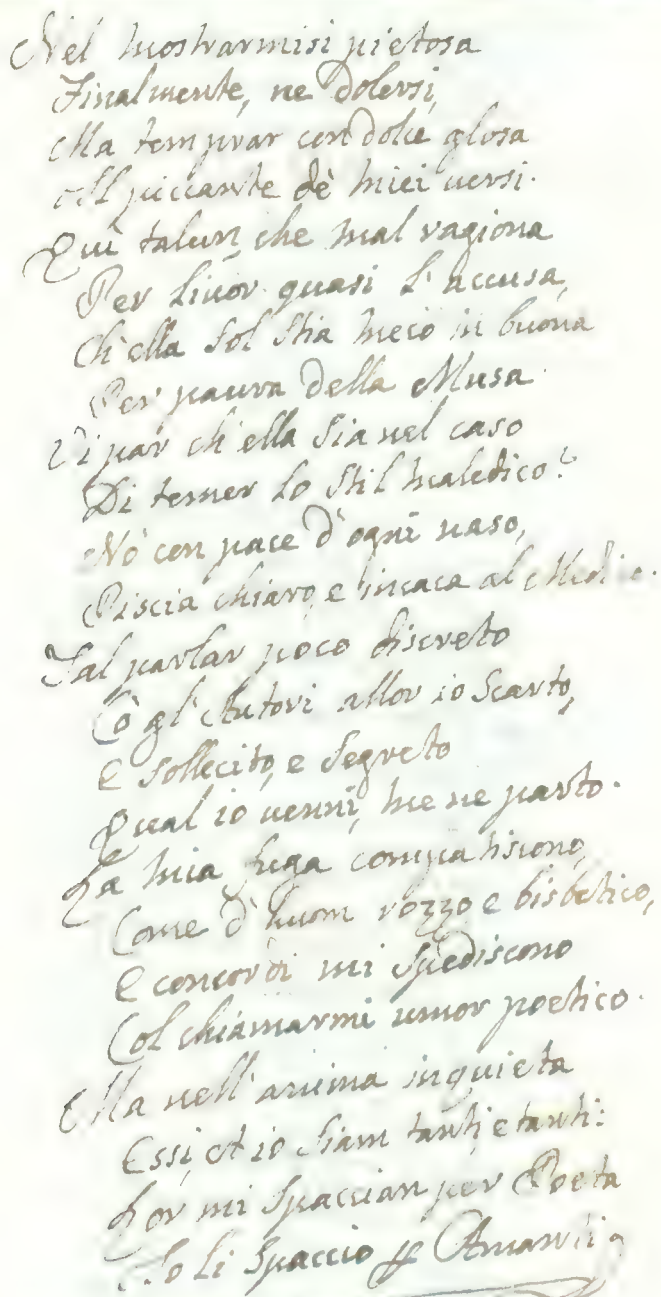 Nel mostrarmisi pietosa
Finalmente, ne dolersi,
Ma temprar con dolce glosa
Il piccante de' miei uersi.
Qui talun, che mal ragiona
Per liuor quasi l'accusa,
Ch'ella sol stia meco in buona
Per paura della Musa.
Vi par ch'ella sia nel caso
Di temer lo stil maledico?
Nò con pace d'ogni naso,
Piscia chiaro, e incaca al Medico.
Tal parlar poco discreto
Cò gl'Autori allor io scarto,
E sollecito, e segreto
Qual io uenni, me ne parto.
La mia fuga compatiscono,
Come d'huom rozzo e bisbetico,
E concordi mi spediscono
Col chiamarmi umor poetico.
Ma nell'anima inquieta
Essi, et io siam tanti, e tanti:
Lor mi spaccian per Poeta
Io li spaccio p Amanti.